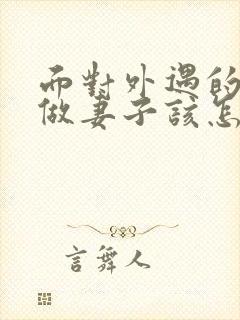 而對外遇的
做妻子該怎
言舞人